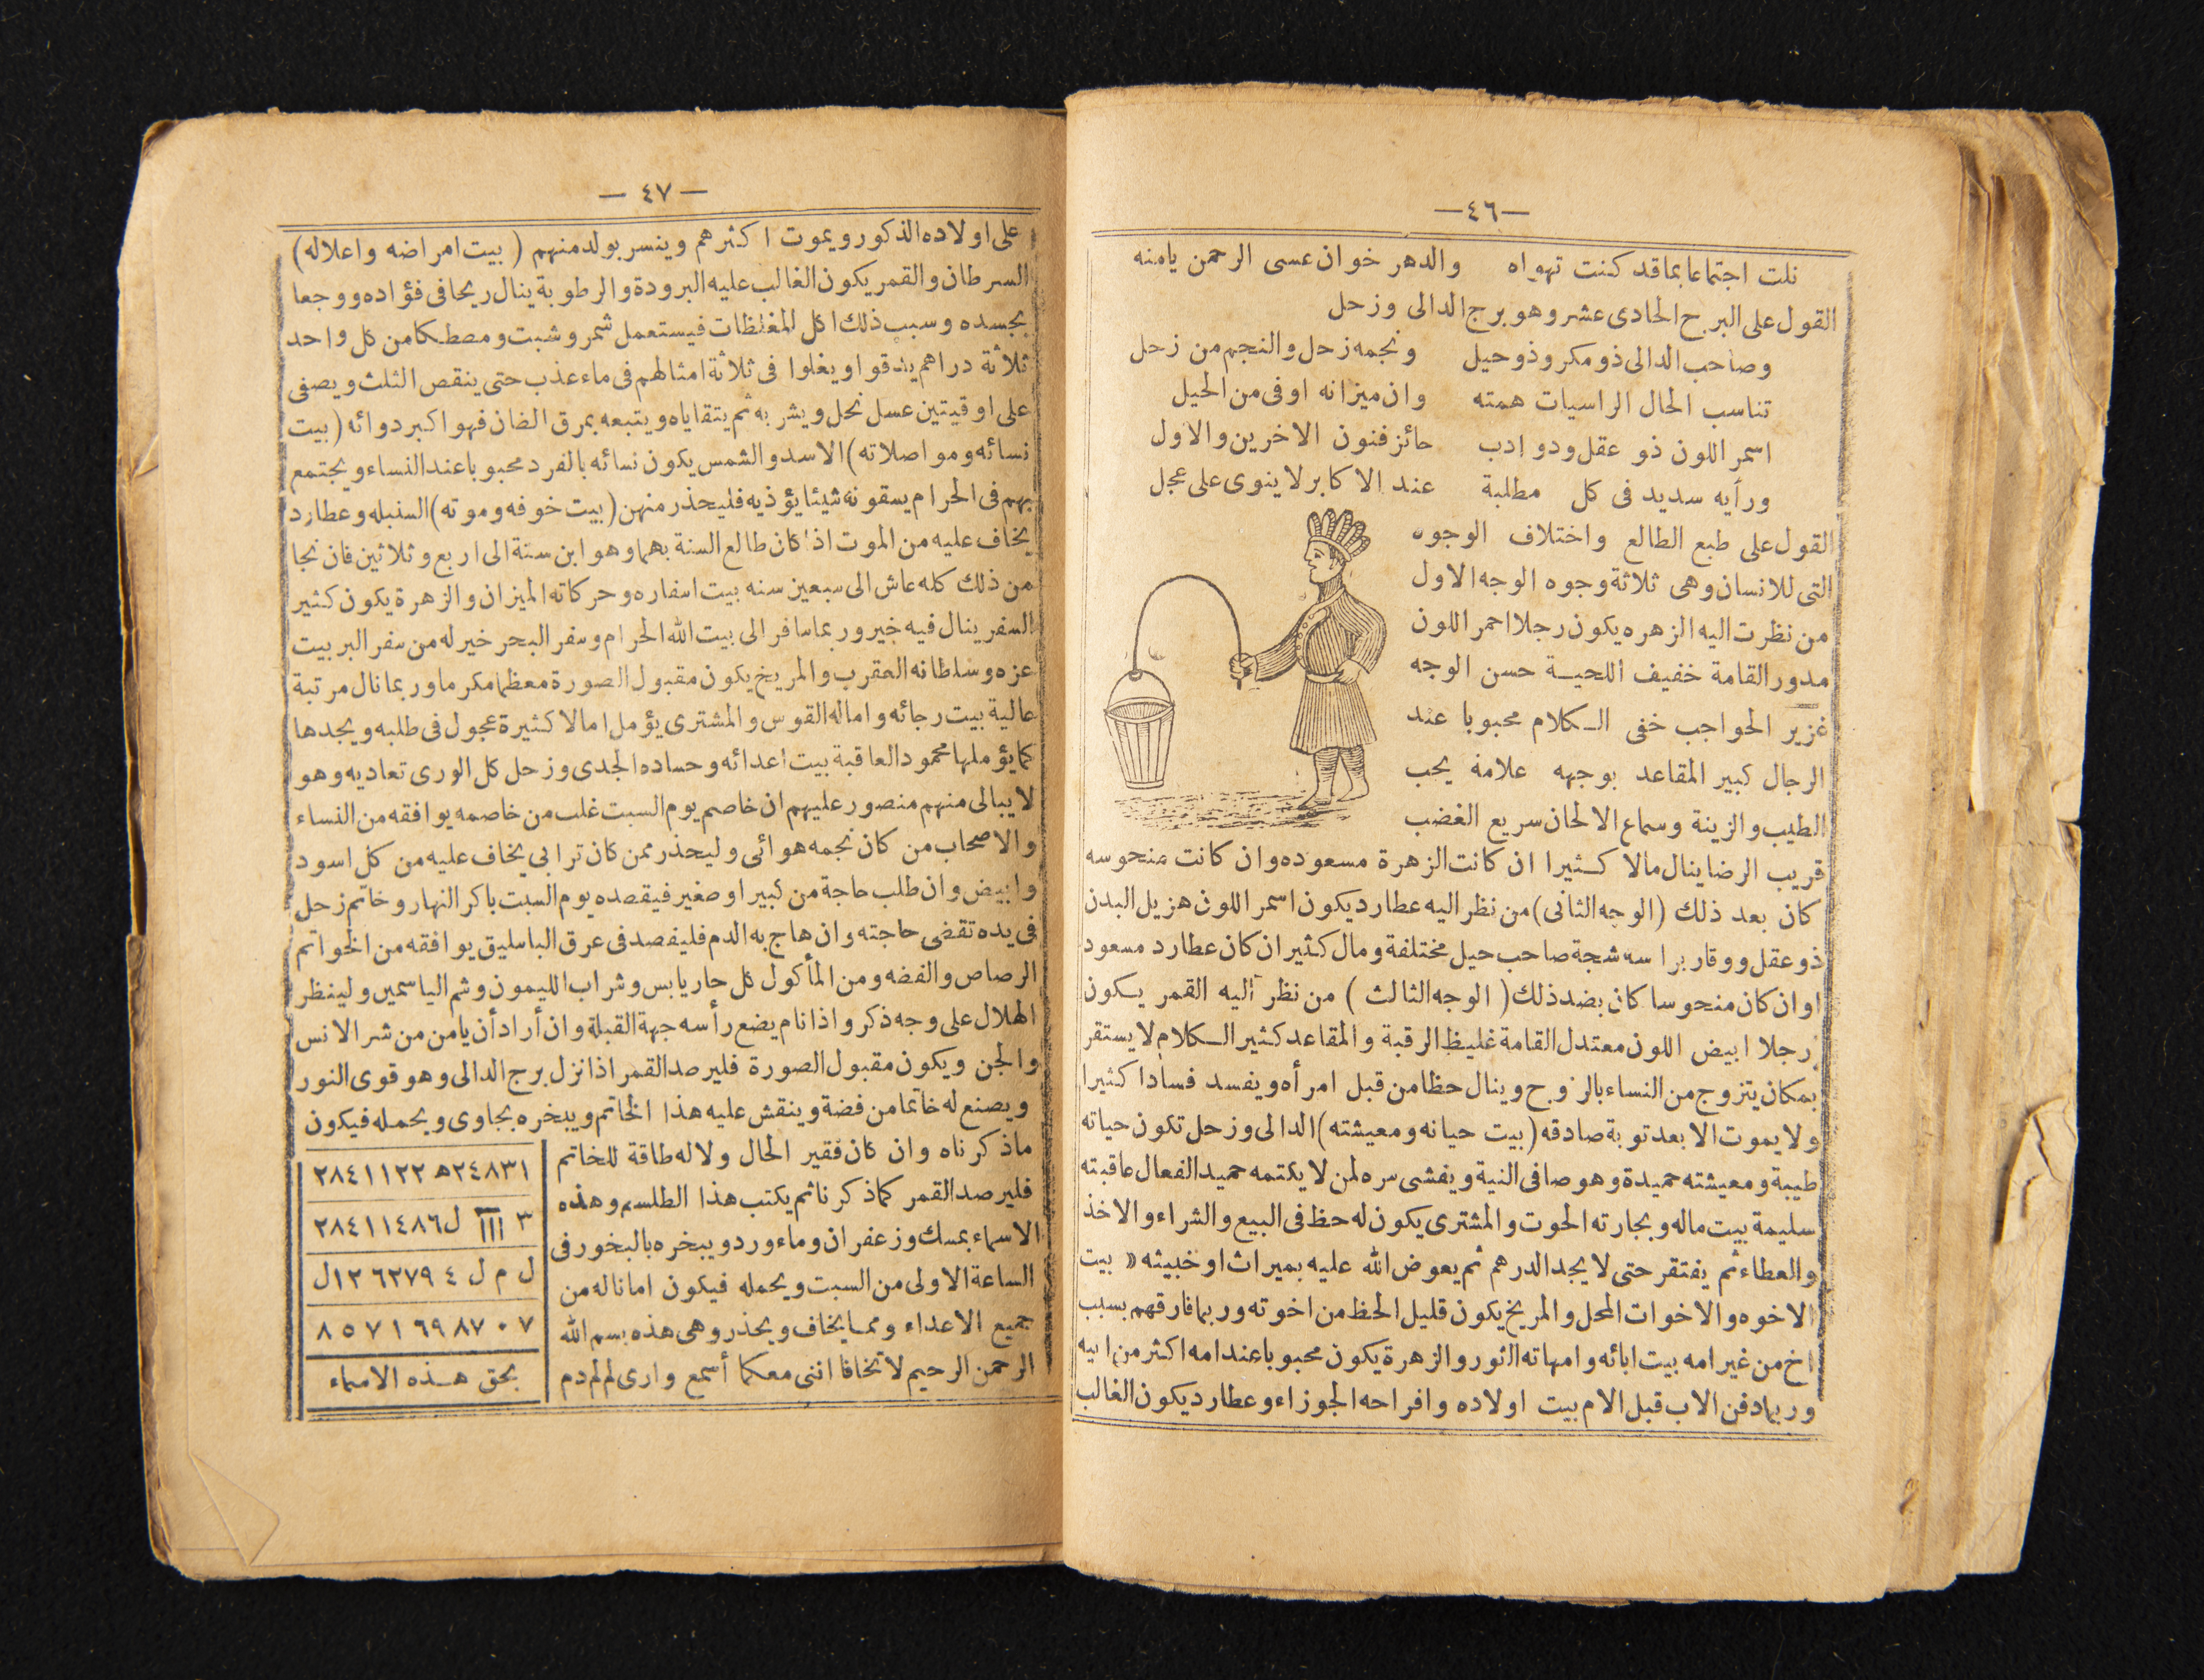 —٤٦—
نلت اجتماعا بما قد كنت تهواه والدهر خوان عسى الرحمن يامنه
القول على البرح الحادى عشر وهو برج الدالى وزحل
وصاحب الدالى ذو مكر وذو حيل ونجمه زحل والنجم من زحل
تناسب الحال الراسيات همته وان ميزانه اوفى من الحيل
اسمر اللون ذو عقل ودو ادب حائز فنون الاخرين والاول
ورأيه سديد فى كل مطلبة عند الاكابر لا ينوى على عجل
القول على طبع الطالع واختلاف الوجوه
التى للانسان وهى ثلاثة وجوه الوجه الاول
من نظرت اليه الزهره يكون رجلا احمر اللون
مدور القامة خفيف اللحيـة حسن الوجه
غزير الحواجب خفى الـكلام محبوبا عند
الرجال كبير المقاعد بوجهه علامة يحب
الطيب والزينة وسماع الالحان سريع الغضب
قريب الرضا ينال مالا كـثيرا ان كانت الزهرة مسعوده وان كانت منحوسه
كان بعد ذلك (الوجه الثانى) من نظر اليه عطارد يكون اسمر اللون هزيل البدن
ذو عقل ووقار براسه شجة صاحب حيل مختلفة ومال كثير ان كان عطارد مسعود
اوان كان منحوسا كان بضد ذلك ( الوجه الثالث ) من نظر اليه القمر يـكون
رجلا ابيض اللون معتدل القامة غليظ الرقبة والمقاعد كثير الـكلام لا يستقر
بمكان يتزوج من النساء بالزوج وينال حظا من قبل امرأه ويفسد فسادا كثيرا
ولا يموت الا بعد توبة صادقه (بيت حياته ومعيشته) الدالى وزحل تكون حياته
طيبة ومعيشته حميدة وهو صافى النية ويفشى سره لمن لا يكتمه حميد الفعال عاقبته
سليمة بيت ماله وتجارته الحوت والمشترى يكون له حظ فى البيع والشراء والاخذ
والعطاء ثم يفتقر حتى لا يجد الدرهم ثم يعوض الله عليه بميراث او خبيثه « بيت
الاخوه والاخوات المحل والمريخ يكون قليل الحظ من اخوته وربما فارقهم بسبب
اخ من غير امه بيت ابائه وامهاته الثور والزهرة يكون محبوبا عند امه اكثر من ابيه
وربما دفن الاب قبل الام بيت اولاده وافراحه الجوزاء وعطارد يكون الغالب
— ٤٧ —
على اولاده الذكور ويموت اكثرهم وينسر بولد منهم ( بيت امراضه واعلاله)
السرطان والقمر يكون الغالب عليه البرودة والرطوبة ينال ريحا فى فؤاده ووجعا
بجسده وسبب ذلك اكل المغلظات فيستعمل شمر وشبت ومصطكا من كل واحد
ثلاثة دراهم يندقوا ويغلوا فى ثلاثة امثالهم فى ماء عذب حتى ينقص الثلث ويصفى
على اوقيتين عسل نحل ويشربه ثم يتقاياه ويتبعه بمرق الضان فهو اكبر دوائه (بيت
نسائه ومواصلاته) الاسد والشمس يكون نسائه بالفرد محبوبا عند النساء ويجتمع
بهم فى الحرام يسقونه شيئا يؤذيه فليحذر منهن (بيت خوفه وموته) السنبله وعطارد
يخاف عليه من الموت اذا كان طالع السنة بهما وهو ابن ستة الى اربع وثلاثين فان نجا
من ذلك كله عاش الى سبعين سنه بيت اسفاره وحركاته الميزان والزهرة يكون كثير
السفر ينال فيه خير وربما سافر الى بيت الله الحرام وسفر البحر خير له من سفر البر بيت
عزه وسلطانه العقرب والمريخ يكون مقبول الصورة معظما مكرما وربما نال مرتبة
عالية بيت رجائه واماله القوس والمشترى يؤمل امالا كثيرة عجول فى طلبه ويجدها
كما يؤملها محمود العاقبة بيت اعدائه وحساده الجدى وزحل كل الورى تعاديه وهو
لا يبالى منهم منصور عليهم ان خاصم يوم السبت غلب من خاصمه يوافقه من النساء
والاصحاب من كان نجمه هوائى وليحذر ممن كان ترابى يخاف عليه من كل اسود
وابيض وان طلب حاجة من كبير او صغير فيقصده يوم السبت باكر النهار وخاتم زحل
فى يده تقضى حاجته وان هاج به الدم فليفصد فى عرق الباسليق يوافقه من الخواتم
الرصاص والفضه ومن المأكول كل حار يابس وشراب الليمون وشم الياسمين ولينظر
الهلال على وجه ذكر واذا نام يضع رأسه جهة القبلة وان أراد أن يامن من شر الانس
والجن ويكون مقبول الصورة فليرصد القمر اذا نزل برج الدالى وهو قوى النور
ويصنع له خاتما من فضة وينقش عليه هذا الخاتم ويبخره بجاوى ويحمله فيكون
ماذكرناه وان كان فقير الحال ولا له طاقة للخاتم
فليرصد القمر كما ذكرنا ثم يكتب هذا الطلسم وهذه
الاسماء بمسك وزعفران وماء ورد ويبخره بالبخور فى
الساعة الاولى من السبت ويحمله فيكون امانا له من
جميع الاعداء وممـا يخاف ويحذر وهى هذه بسم الله
الرحمن الرحيم لا تخافا اننى معكما أسمع وارى لم لم دم
٢٨٤١١٢٢ ھ٢٤٨٣١
٣ ااا ل٢٨٤١١٤٨٦
ل م ل ٤ ٦٢٧٩ ١٢ل
٨ ٥ ٧ ١ ٦٩ ٨٧ ٠ ٧
بحق هـذه الاسماء